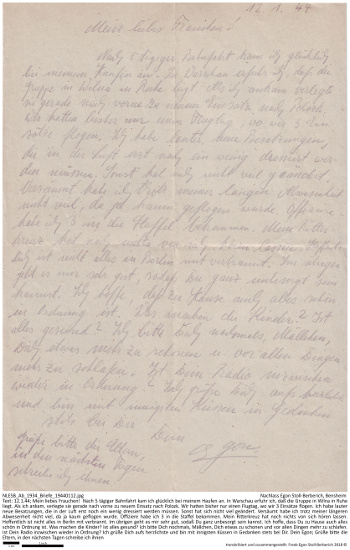 12.1.44
Mein liebes Frauchen!
Nach 5 tägiger Bahnfahrt kam ich glücklich
bei meinem Haufen an. In Warschau erfuhr ich, daß die
Gruppe in Wilna in Ruhe liegt. Als ich ankam, verlegte
sie gerade nach vorne zu neuem Einsatz nach
Wir hatten bisher nur einen Flugtag, wo wir 3 Ein-
sätze flogen. Ich habe lauter neue Besatzungen,
die in der Luft erst noch ein wenig dressiert wer-
den müssen. Sonst hat sich nicht viel geändert.
Versäumt habe ich trotz meiner langen Abwesenheit
nicht viel, da ja kaum geflogen wurde. Offiziere
habe ich 3 in die Staffel bekommen. Mein Ritter-
kreuz hat noch nichts von sich hören lassen. Hoffent-
lich ist nicht alles in Berlin mit verbrannt. Im übrigen
geht es mir sehr gut, sodaß Du ganz unbesorgt sein
kannst. Ich hoffe, daß zu Hause auch alles schön
in Ordnung ist. Was machen die Kinder? Ist
alles gesund? Ich bitte Dich nochmals, Mädchen,
Dich etwas mehr zu schonen u. vor allen Dingen
mehr zu schlafen. Ist Dein Radio inzwischen
wieder in Ordnung? Ich grüße Dich aufs herzlichste
und bin mit innigsten Küssen in Gedanken
stets bei Dir
Dein
Egon
Grüße bitte die Eltern,
in den nächsten Tagen
schreibe ich ihnen.
NLESB_Ab_1934_Briefe_19440112.jpg
Nachlass Egon Stoll-Berberich, Bensheim
Text: 12.1.44; Mein liebes Frauchen! Nach 5 tägiger Bahnfahrt kam ich glücklich bei meinem Haufen an. In Warschau erfuhr ich, daß die Gruppe in Wilna in Ruhe
liegt. Als ich ankam, verlegte sie gerade nach vorne zu neuem Einsatz nach Polosk. Wir hatten bisher nur einen Flugtag, wo wir 3 Einsätze flogen. Ich habe lauter
neue Besatzungen, die in der Luft erst noch ein wenig dressiert werden müssen. Sonst hat sich nicht viel geändert. Versäumt habe ich trotz meiner langen
Abwesenheit nicht viel, da ja kaum geflogen wurde. Offiziere habe ich 3 in die Staffel bekommen. Mein Ritterkreuz hat noch nichts von sich hören lassen.
Hoffentlich ist nicht alles in Berlin mit verbrannt. Im übrigen geht es mir sehr gut, sodaß Du ganz unbesorgt sein kannst. Ich hoffe, daß Du zu Hause auch alles
schön in Ordnung ist. Was machen die Kinder? Ist alles gesund? Ich bitte Dich nochmals, Mädchen, Dich etwas zu schonen und vor allen Dingen mehr zu schlafen.
Ist Dein Radio inzwischen wieder in Ordnung? Ich grüße Dich aufs herzlichste und bin mit innigsten Küssen in Gedanken stets bei Dir. Dein Egon; Grüße bitte die
Eltern, in den nächsten Tagen schreibe ich ihnen.